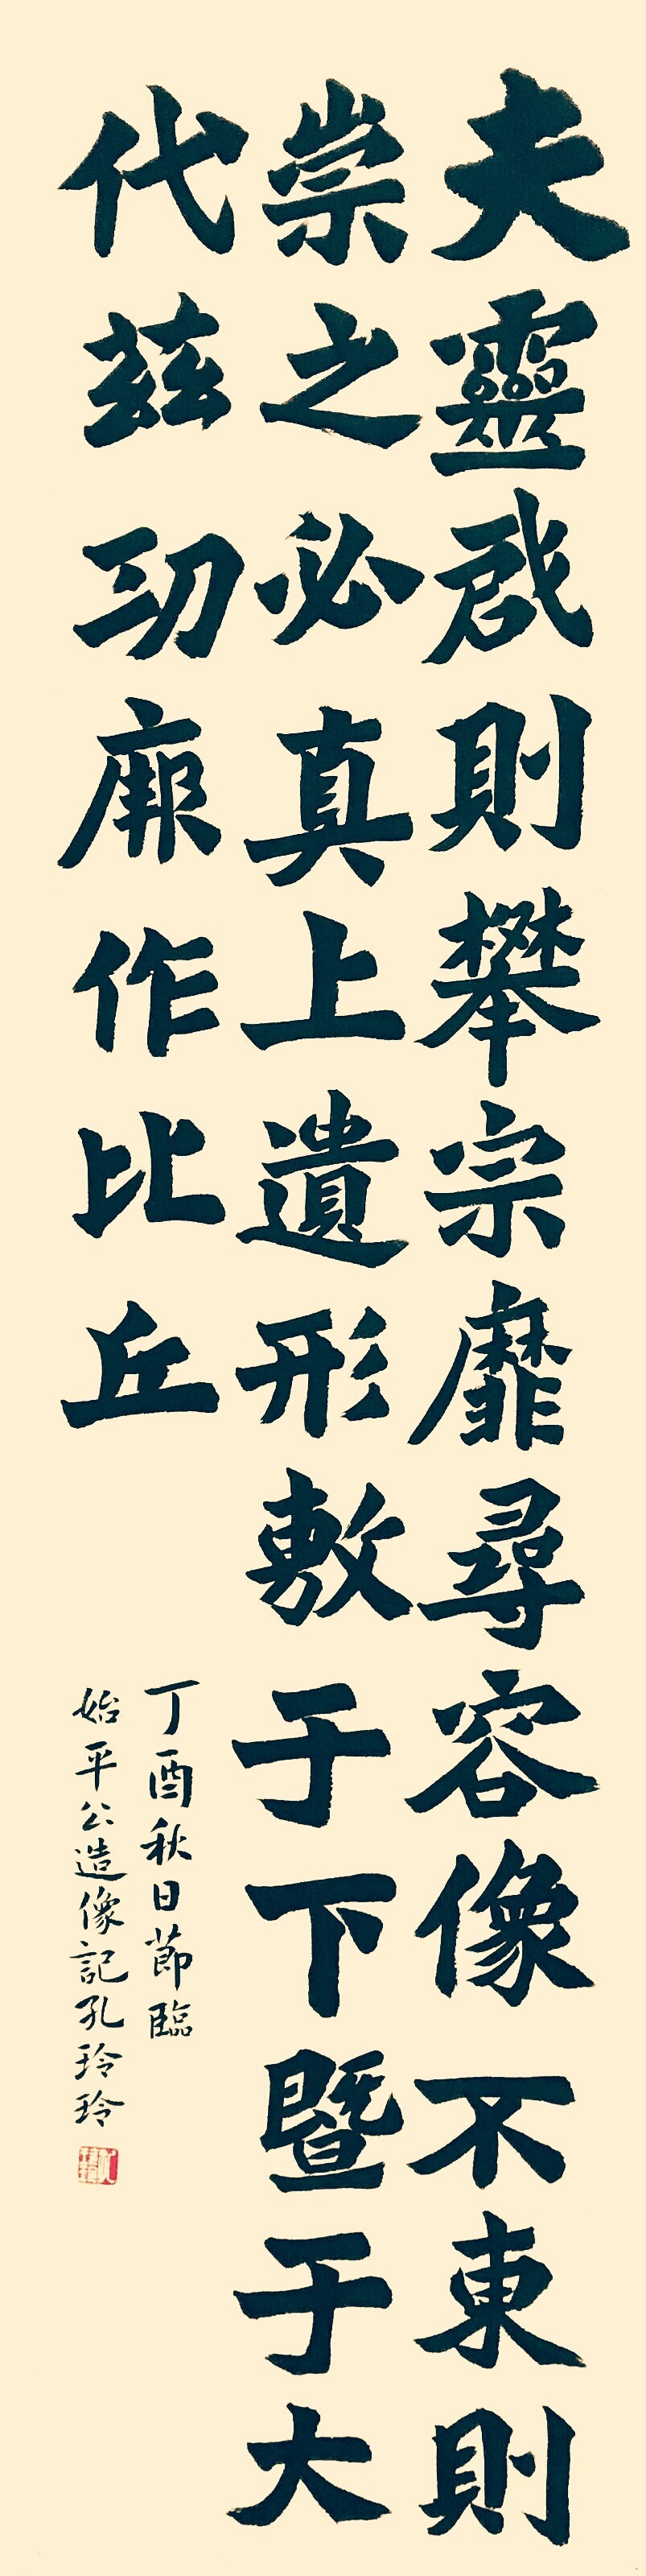 夫靈启則攀宗靡尋容像不東則
崇之必真上遺形敷于下暨于大
代茲功厥作比丘
丁酉秋日節臨
始平公造像記孔玲玲